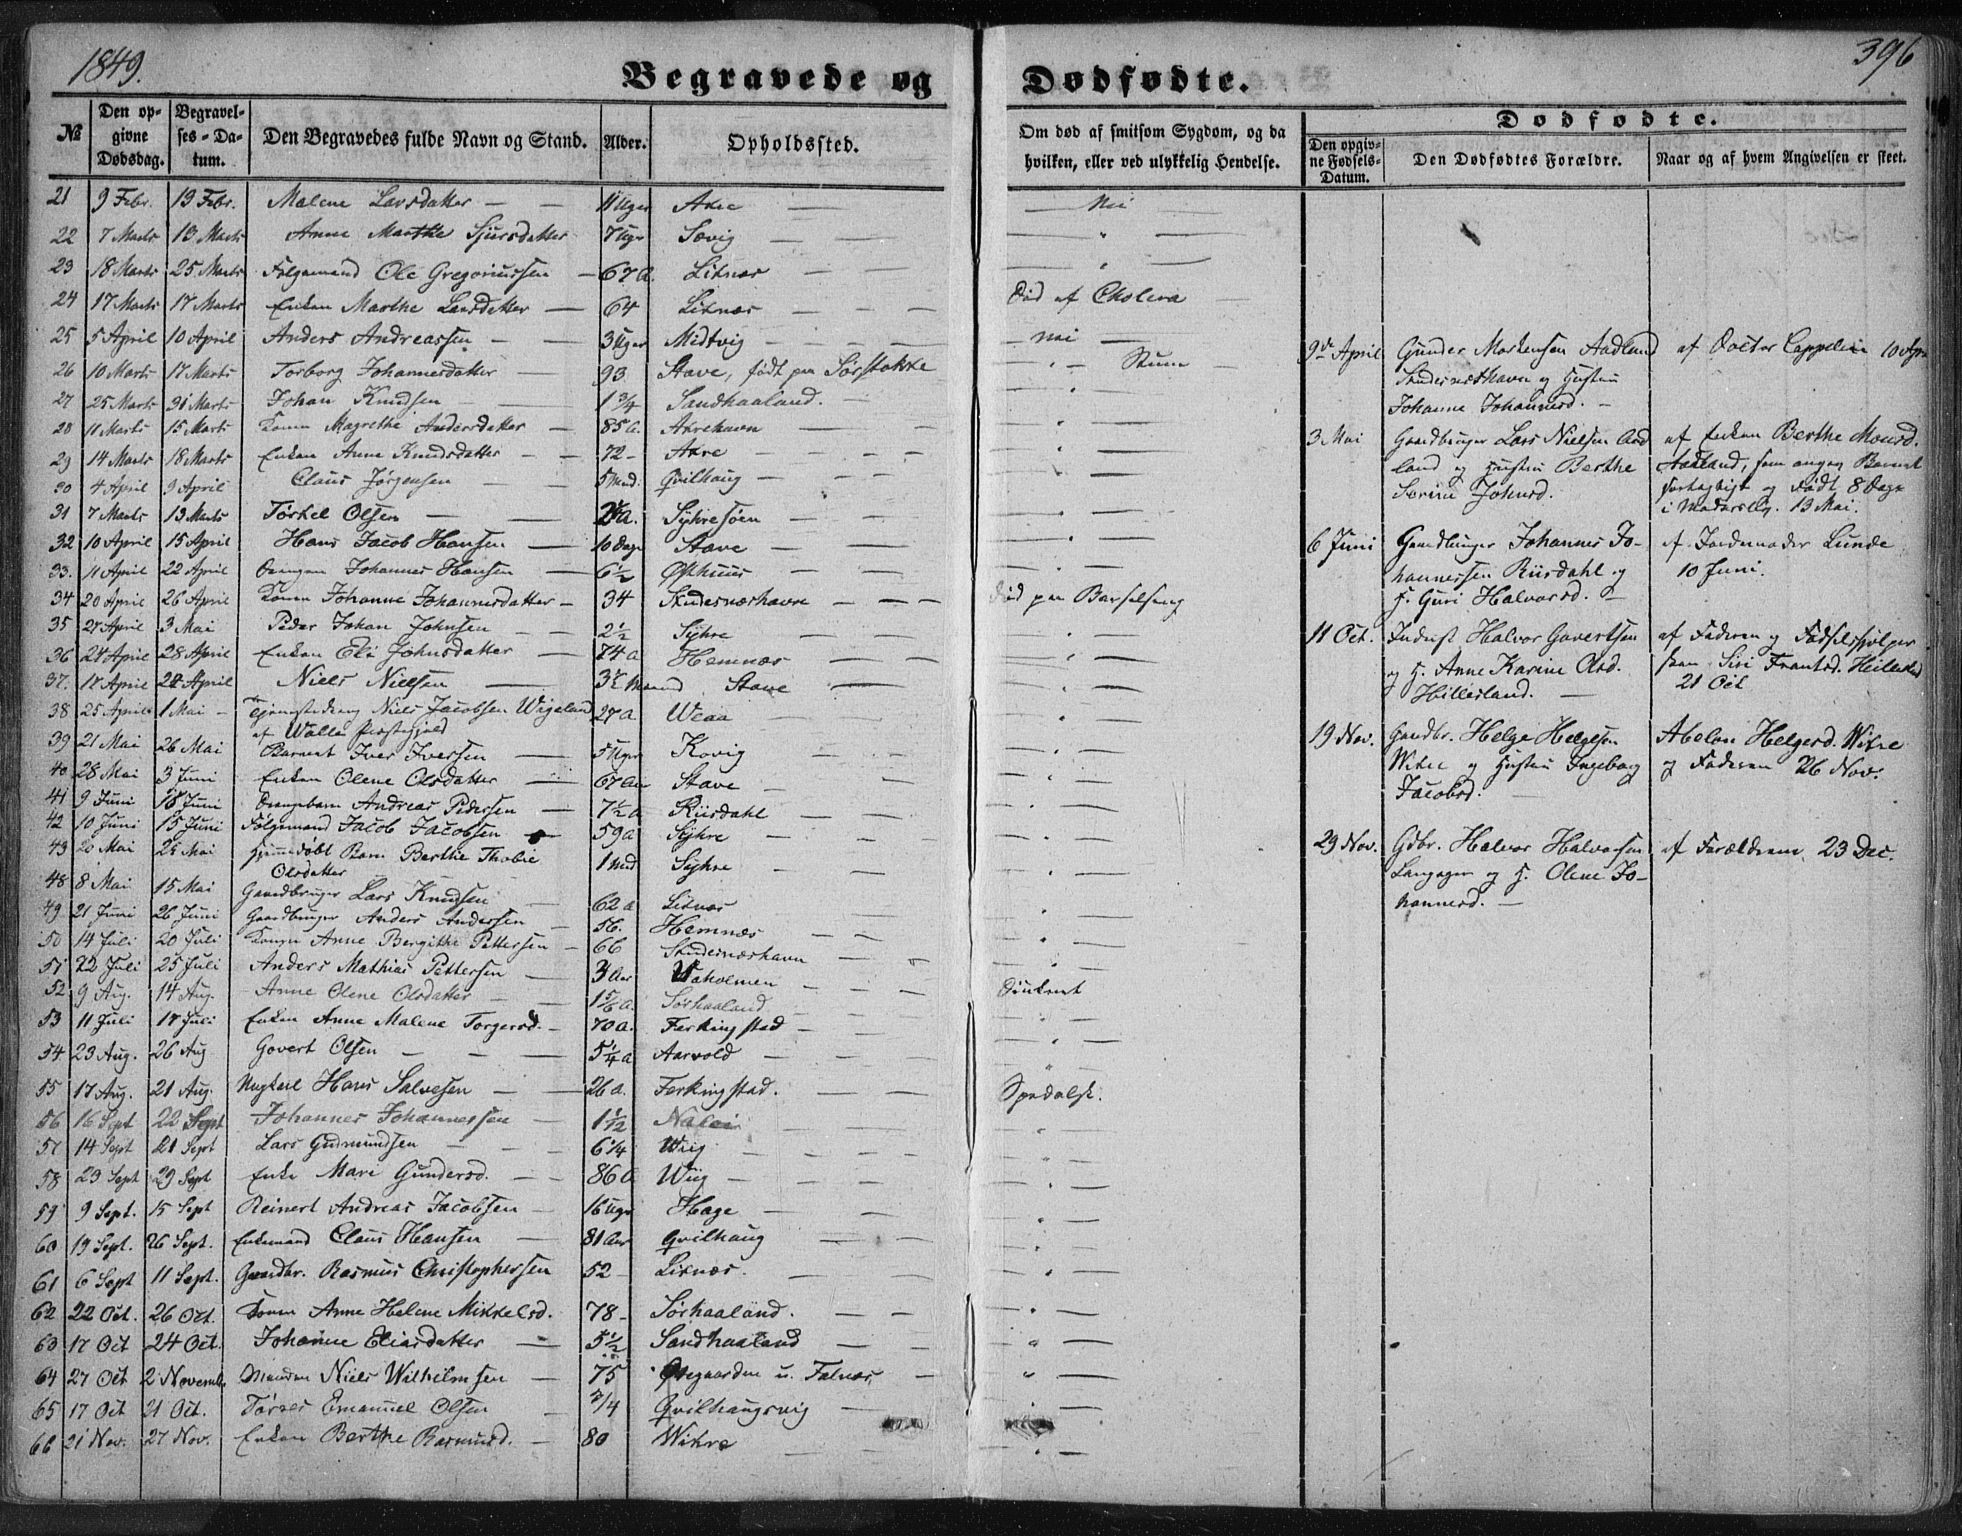 1849.
396
Begravede og Dødfødte.
№ | Den opgivne Dødsdag. | Begravelses-Datum. | Den Begravedes fulde Navn og Stand. | Alder. | Opholdssted. | Om død af smitsom Sygdom, og da hvilken, eller ved ulykkelig Hendelse.
21 | 9 Febr. | 19 Febr. | Malene Larsdatter | 11 Uger | Akre | Nei
22 | 7 Marts | 13 Marts | Anne Marthe Sjursdatter | 7 Ugr | Sævig | "
23 | 18 Marts | 25 Marts | Følgemand Ole Gregoriussen | 67 A. | Liknæs | "
24 | 17 Marts | 17 Marts | Enken Marthe Larsdatter | 64 | Liknæs | Død af Cholera
25 | 5 April | 10 April | Anders Andreassen | 3 Uger | Midtvig | nei
26 | 10 Marts | 17 Marts | Torborg Johannesdatter | 93 | Stave, født paa Sørstokke | "
27 | 25 Marts | 31 Marts | Johan Knudsen | 1 3/4 | Sandhaaland | "
28 | 11 Marts | 15 Marts | Konen Magrethe Andersdatter | 85 a. | Akrehavn | "
29 | 14 Marts | 18 Marts | Enken Anne Knudsdatter | 72 | Akre | "
30 | 4 April | 9 April | Claus Jørgensen | 5 Mnd. | Qvilhaug | "
31 | 7 Marts | 13 Marts | Torkel Olsen | a. | Syhresøen | "
32 | 10 April | 15 April | Hans Jacob Hansen | 10 Dage | Stave | "
33. | 11 April | 22 April | Drengen Johannes Hansen | 6 1/2 | Østhuus | "
34 | 20 April | 26 April | Konen Johanne Johannesdatter | 34 | Skudesnæshavn | Død paa Barselseng
35 | 27 April | 3 Mai | Peder Johan Johnsen | 2 1/2 | Syhre | "
36 | 24 April | 28 April | Enken Eli Johnsdatter | 74 a | Hemnæs | "
37. | 17 April | 24 April | Niels Nielsen | 3 1/2 Maaned | Stave | "
38 | 25 April | 1 Mai | Tjenestedreng Niels Jacobsen Wigeland | 27 a | Weaa | "
af Walle Præstegjeld
39 | 21 Mai | 26 Mai | Barnet Iver Iversen | 5 Uger | Kovig | "
40 | 28 Mai | 3 Juni | Enken Olene Olsdatter | 67 Aar | Stave | "
41 | 9 Juni | 18 Juni | Drengebarn Andreas Pedersen | 7 1/2 a | Riisdahl | "
42 | 10 Juni | 15 Juni | Følgemand Jacob Jacobsen | 59 a | Syhre | "
43 | 20 Mai | 25 Mai | Hjemmedøbt Barn Berthe Thobie Olsdatter | 1 Mnd | Syhre | "
48 | 8 Mai | 15 Mai | Gaardbruger Lars Knudsen | 62 a | Liknæs | "
49 | 21 Juni | 26 Juni | Gaardbruger Anders Andersen | 56. | Hemnæs | "
50 | 14 Juli | 20 Juli | Konen Anne Bergithe Pettersen | 66 | Skudesnæshavn | "
51 | 22 Juli | 25 Juli | Anders Mathias Pettersen | 3 Aar | Vaholmen | Druknet
52 | 9 Aug. | 14 Aug. | Anne Olene Olsdatter | 1 5/6 a. | Sørhaaland | "
53 | 11 Juli | 17 Juli | Enken Anne Malene Torgersd. | 70 a. | Ferkingstad | "
54 | 23 Aug. | 26 Aug | Govert Olsen | 5 1/4 a | Aarvold | "
55 | 17 Aug. | 21 Aug. | Ungkarl Hans Salvesen | 26 a. | Ferkingstad. | Spedalsk.
56 | 16 Sept | 22 Sept | Johannes Johannessen | 1 1/2 | | "
57 | 14 Sept | 21 Sept | Lars Gudmundsen | 6 1/4 | Wiig | "
58 | 23 Sept | 29 Sept | Enke Mari Gundersd. | 86 a | Wiig | "
59 | 9 Sept. | 15 Sept | Reinert Andreas Jacobsen | 16 Uger | Hage | "
60 | 19 Sept. | 26 Sept. | Enkemand Claus Hansen | 81 Aar | Qvilhaug | "
61 | 6 Sept | 11 Sept. | Gaardbr. Rasmus Christophersen | 52 | Liknæs. | "
62 | 22 Oct. | 26 Oct. | Konen Anne Helene Mikkelsd. | 78 | Sørhaaland. | "
63 | 17 Oct | 24 Oct. | Johanne Eliasdatter | 5 1/2 | Sandhaaland | "
64 | 27 Oct | 2 Novemb. | Manden Niels Wilhelmsen | 75 | Øvegaarden u. Falnæs | "
65 | 17 Oct | 21 Oct. | Tørres Emanuel Olsen | 3/4 | Qvilhaugsvig | "
66 | 21 Nov. | 27 Nov. | Enken Berthe Rasmusd. | 80 | Wikre | "
Dødfødte.
Den opgivne Fødsels-Datum. | Den Dødfødtes Forældre. | Naar og af hvem Angivelsen er skeet.
9de April | Gunder Mortensen Aadland | af Doctor Cappelen 10 Apr
Skudesnæshavn og Hustru
Johanne Johannesd.
3 Mai | Gaardbruger Lars Nielsen Aad- | af Enken Berthe Monsd.
land og Hustru Berthe | Aadland, som angav Barnet
Serine Johnsd. | født 8 Dage
i Modersliv. 13 Mai.
6 Juni | Gaardbruger Johannes Jo- | af Jordemoder Lunde
hannessen Riisdahl og | 10 Juni.
H. Guri Halvorsd.
11 Oct. | Inderst Halvor Govertsen | af Faderen og Fødselshjelper-
og H. Anne Karine Olsd. | sken Siri Frantsd. Hillesland
Hillesland. | 21 Oct
19 Nov. | Gaardbr. Helge Helgesen | Abelon Helgesd. Wikre
Wikre og Hustru Ingeborg | og Faderen 26 Nov.
Jacobsd.
29 Nov. | Gdbr. Halvor Halvorsen | af Forældrene. 23 Dec.
Langager og H. Olene Jo-
hannesd.